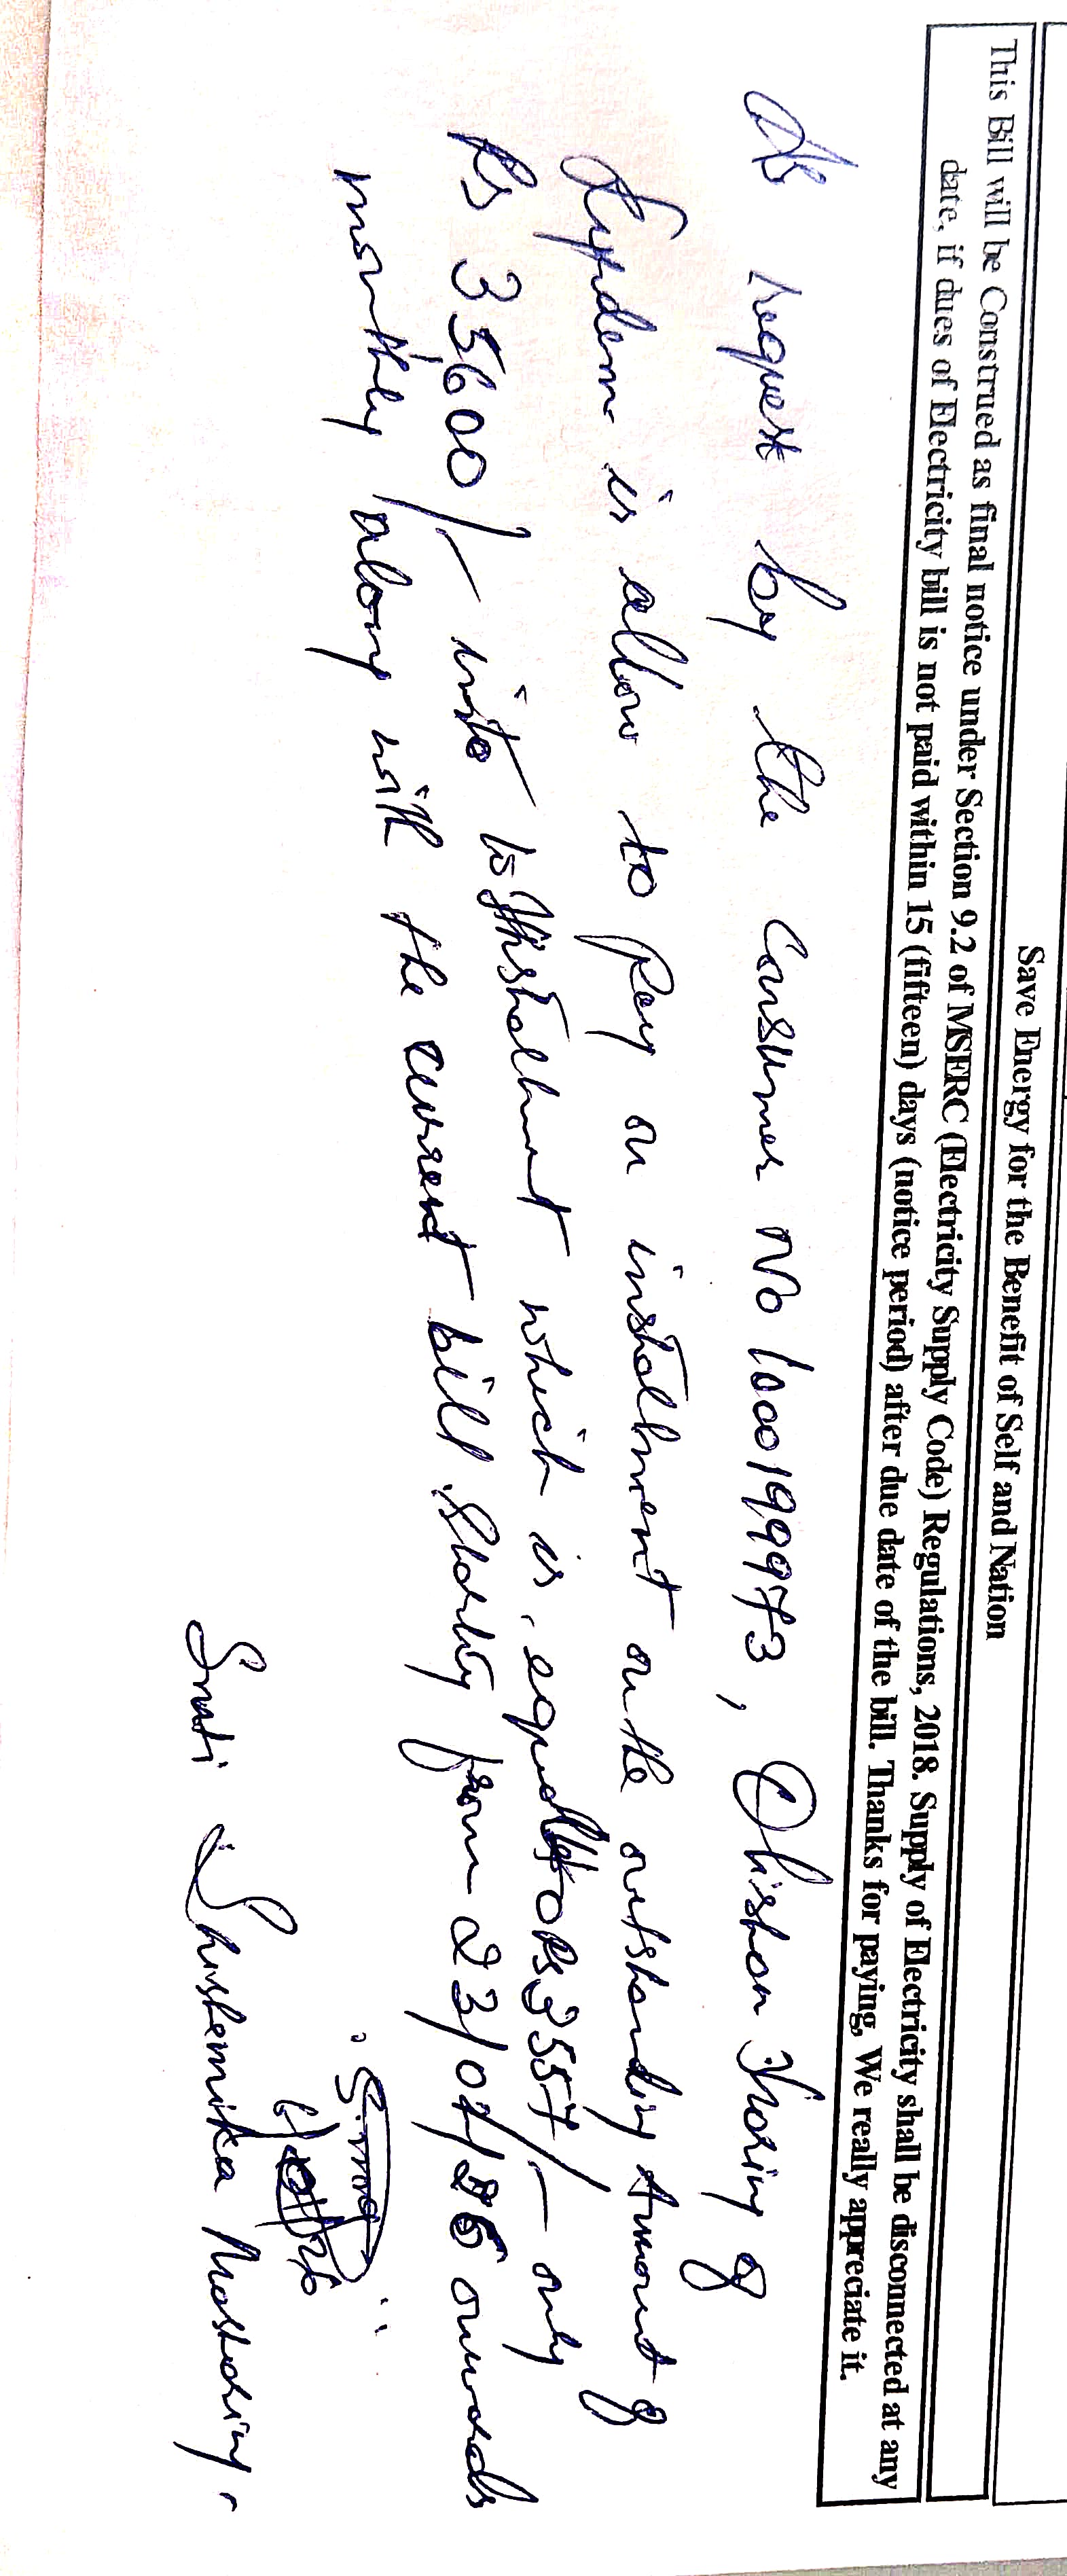 Save Energy for the Benefit of Self and Nation
This Bill will be Construed as final notice under Section 9.2 of MSERC (Electricity Supply Code) Regulations, 2018. Supply of Electricity shall be disconnected at any
date, if dues of Electricity bill is not paid within 15 (fifteen) days (notice period) after due date of the bill. Thanks for paying, We really appreciate it.
As request by the consumer No 1000199973, Khasing of
is allow to pay on installment on the outstanding Amount of
Rs 35600/- into 10 Installment which is equal to Rs 3557/- only
monthly along with the current bill Starting from 23/07/ onwards
Smti